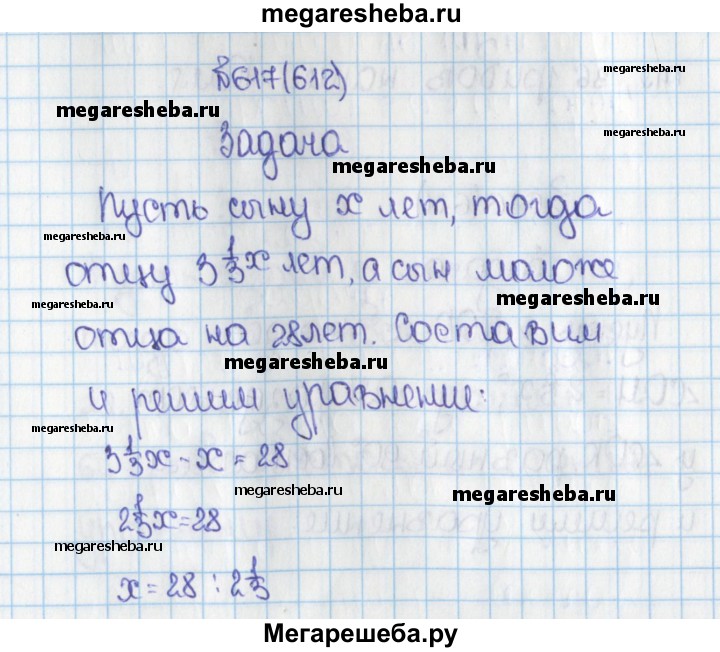 megaresheba.ru
№617(612)
megaresheba.ru
megaresheba.ru
Задача
megaresheba.ru
Пусть сыну x лет, тогда
megaresheba.ru
отцу 3 1/3 x лет, а сын моложе
megaresheba.ru
megaresheba.ru
отца на 28 лет. Составим
megaresheba.ru
и решим уравнение:
megaresheba.ru
3 1/3 x - x = 28
megaresheba.ru
megaresheba.ru
2 1/3 x = 28
megaresheba.ru
x = 28 : 2 1/3
Мегарешеба.ру